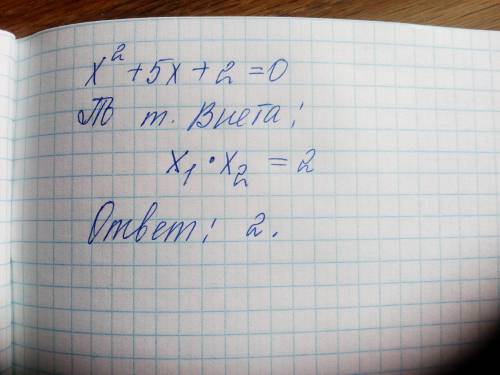 x² + 5x + 2 = 0
т. Виета:
x₁ · x₂ = 2
Ответ: 2.